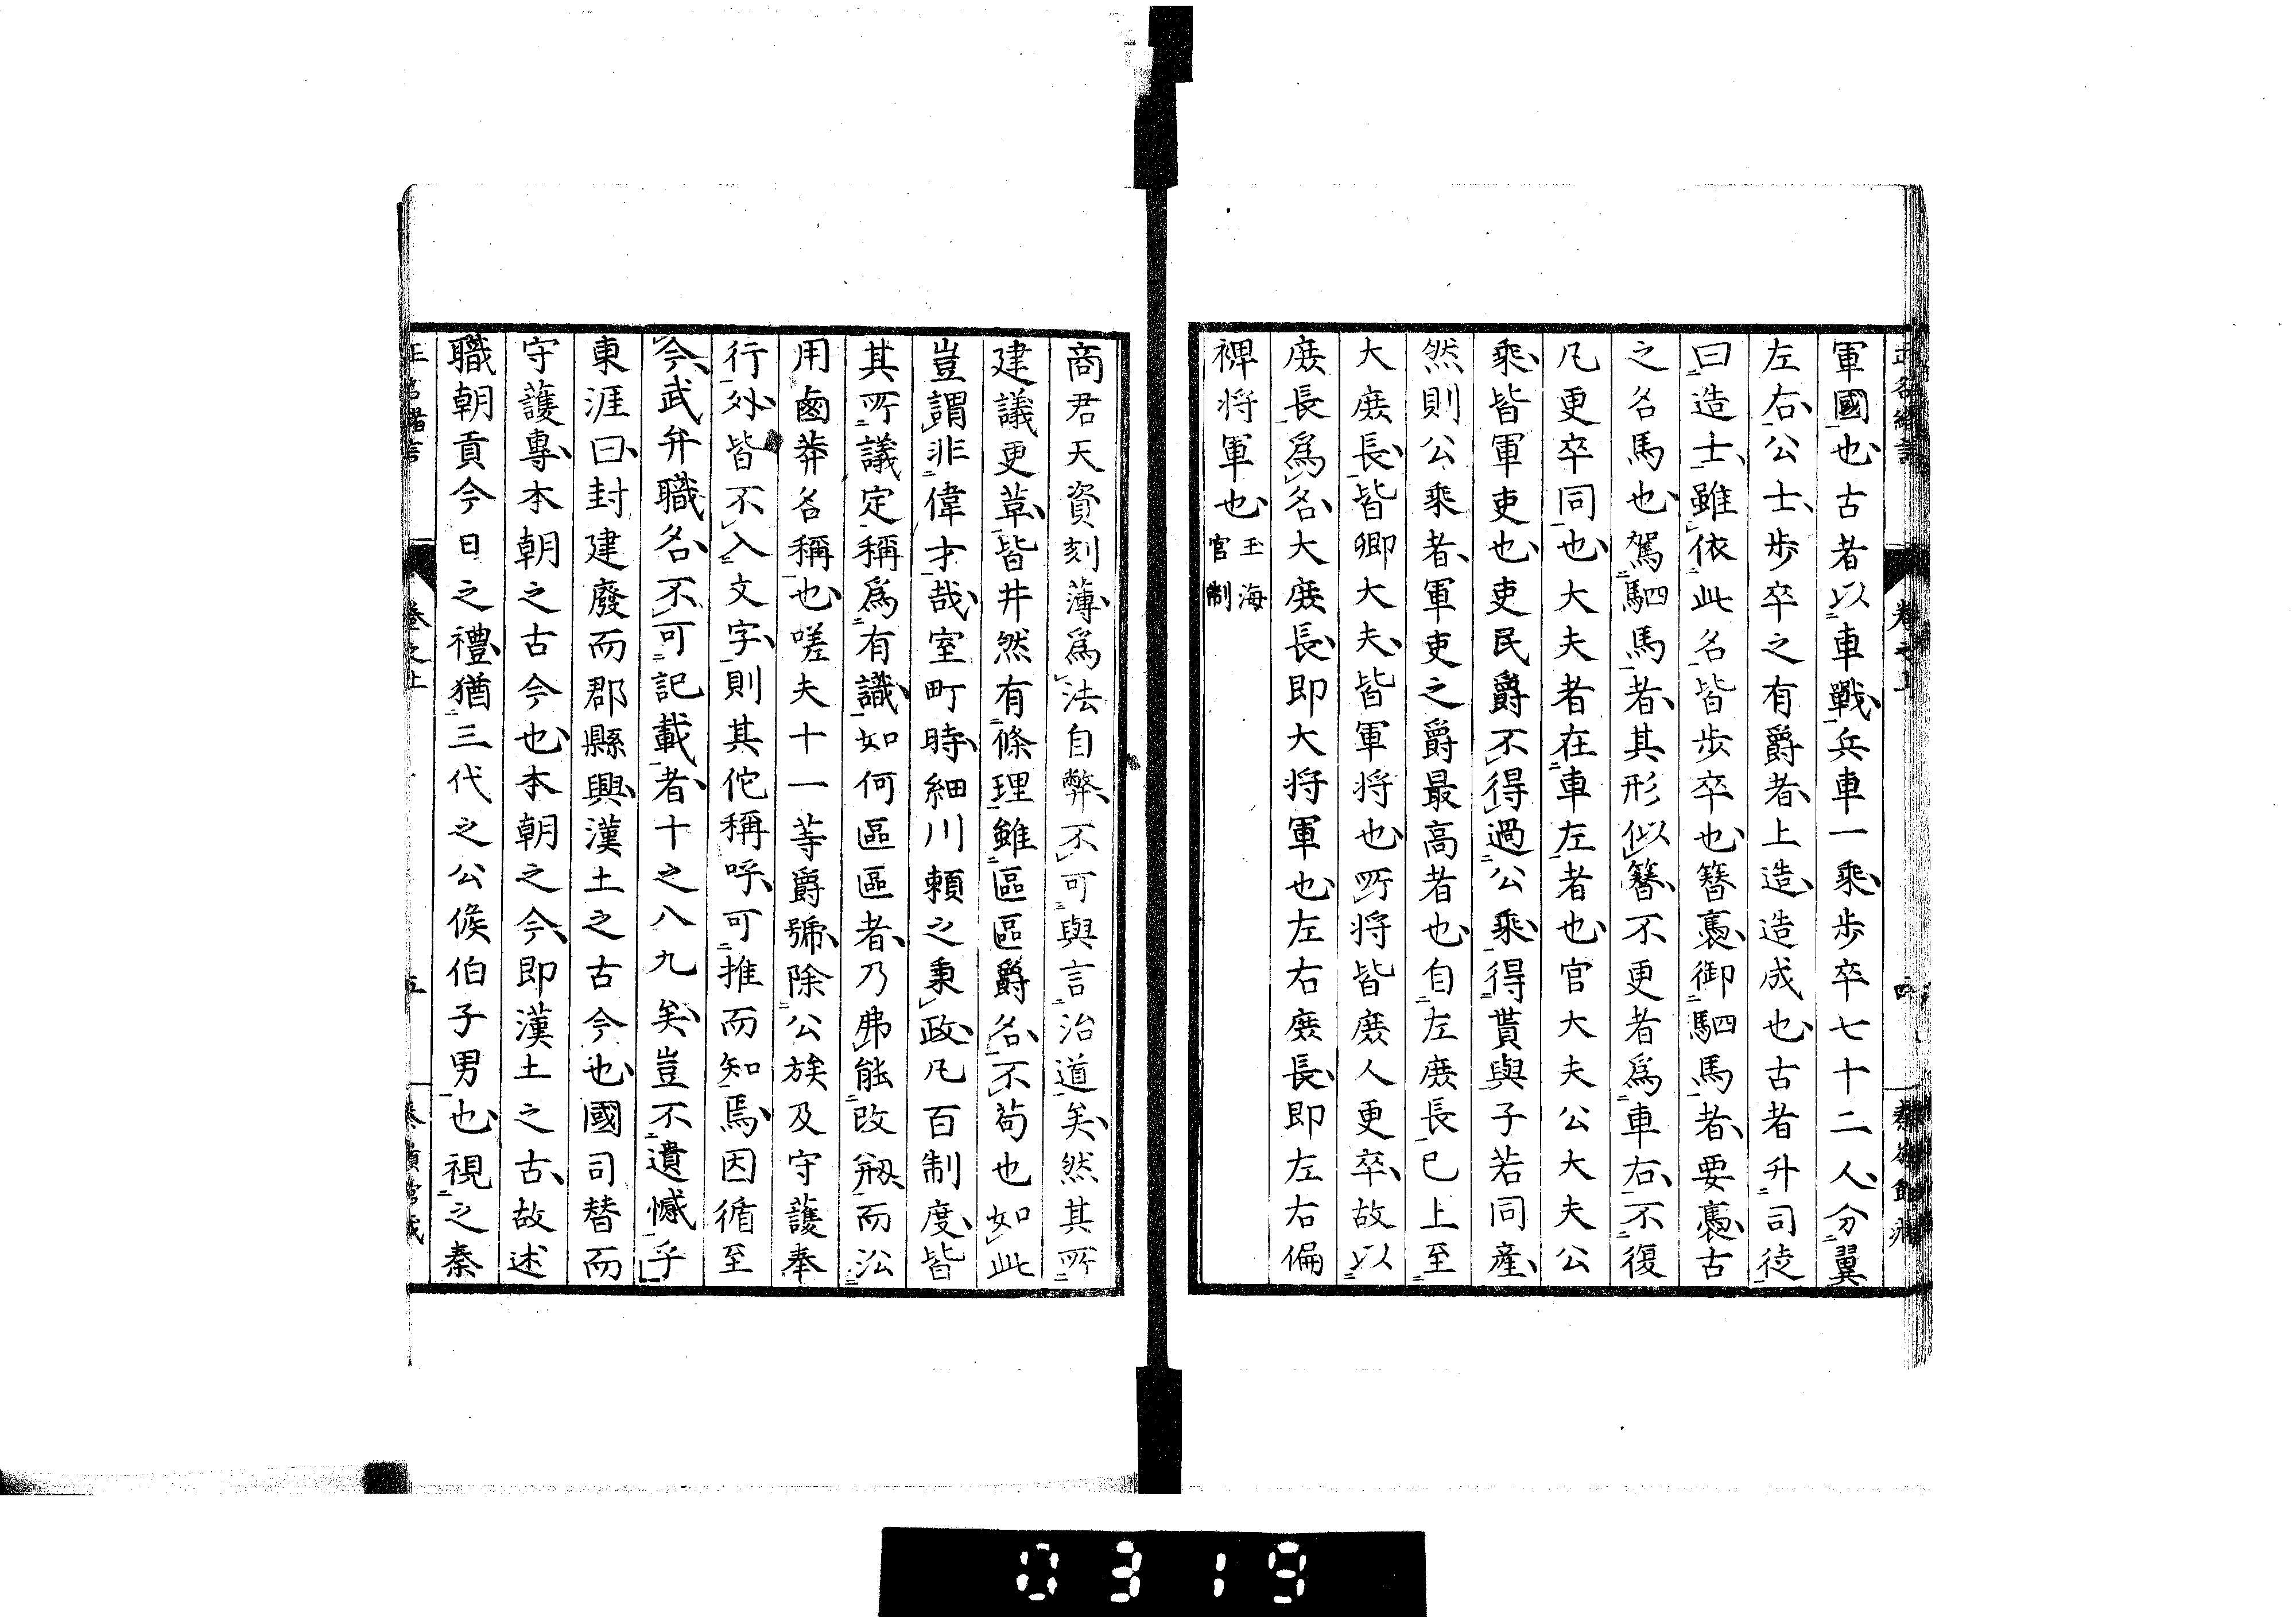 軍國也古者以車戰兵車一乘步卒七十二人分翼
左右公士步卒之有爵者上造造成也古者升司徒
曰造士雖依此名皆步卒也簪褭御駟馬者要褭古
之名馬也駕駟馬者其形似簪不更者爲車右不復
凡更卒同也大夫者在車左者也官大夫公大夫公
乘皆軍吏也吏民爵不得過公乘得貰與子若同產
然則公乘者軍吏之爵最高者也自左庶長已上至
大庶長皆卿大夫皆軍將也所將皆庶人更卒故以
庶長爲名大庶長即大將軍也左右庶長即左右偏
裨將軍也玉海官制
商君天資刻薄爲法自弊不可與言治道矣然其所
建議更革皆井然有條理雖區區爵名不苟也如此
豈謂非偉才哉室町時細川賴之秉政凡百制度皆
其所議定稱爲有識如何區區者乃弗能改剏而沿
用鹵莽名稱也嗟夫十一等爵號除公族及守護奉
行外皆不入文字則其佗稱呼可推而知焉因循至
今武弁職名不可記載者十之八九矣豈不遺憾乎
東涯曰封建廢而郡縣興漢土之古今也國司替而
守護專本朝之古今也本朝之今即漢土之古故述
職朝貢今日之禮猶三代之公侯伯子男也視之秦
卷之上
五
0319